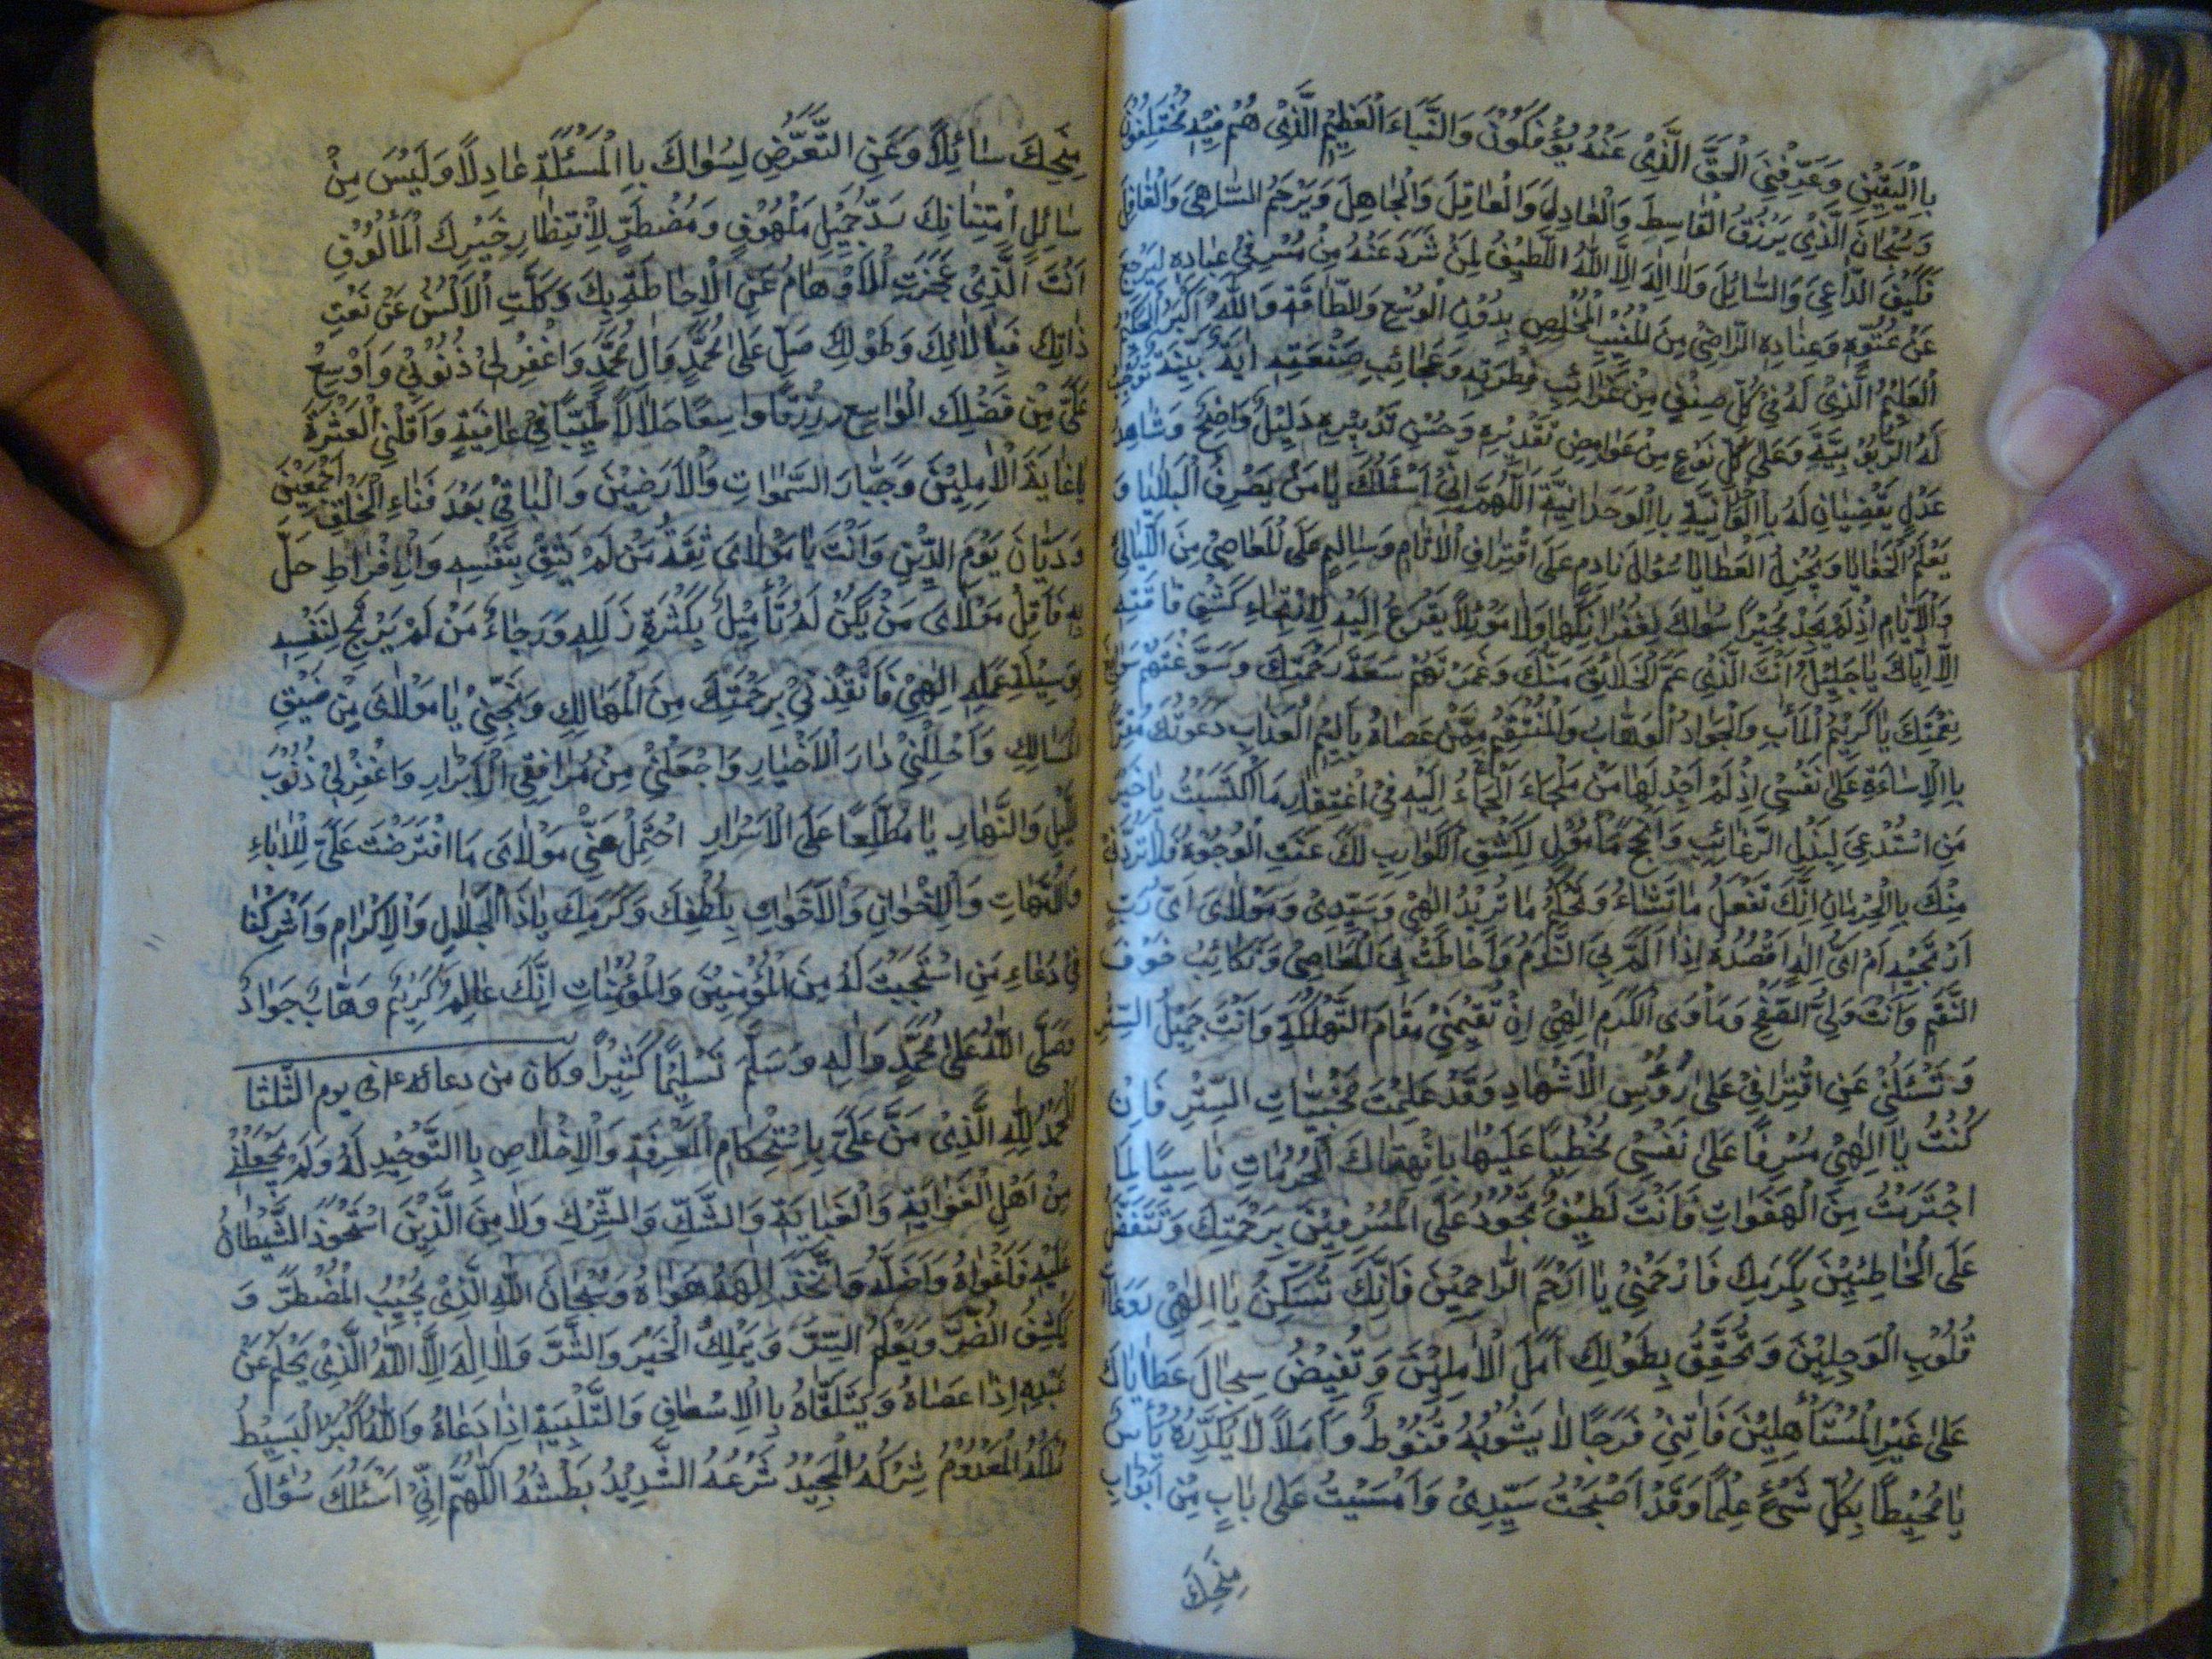 بِاالْيَقِيْنِ وَعَرَّفَنِيَ الْحَقَّ الَّذِيْ عَنْهُ يُؤْفَكُوْنَ وَالنَّبَاءَ الْعَظِيْمِ الَّذِيْ هُمْ فِيْهِ مُخْتَلِفُوْنَ
وَسُبْحَانَ الَّذِيْ يَرْزُقُ الْقَاسِطَ وَالْعَادِلَ وَالْعَاقِلَ وَالْجَاهِلَ وَيَرْحَمُ السَّاهِيَ وَالْغَافِلَ
فَكَيْفَ الدَّاعِيَ وَالسَّائِلَ وَلَا اِلٰهَ اِلَّا اللهُ اللَّطِيْفُ لِمَنْ شَرَدَ عَنْهُ مِنْ مُسْرِفِيْ عِبَادِهِ لِيَرْجِعَ
عَنْ عُتُوِّهِ وَعِنَادِهِ الرَّاضِيْ مِنَ الْمُنِيْبِ الْمُخْلِصِ بِدُوْنِ الْوُسْعِ وَالطَّاقَةِ وَاللهُ اَكْبَرُ الْحَكِيْمُ
الْعَلِيْمُ الَّذِيْ لَهُ فِيْ كُلِّ صِنْفٍ مِنْ غَرَائِبِ فِطْرَتِهِ وَعَجَائِبِ صَنْعَتِهِ اٰيَةٌ بَيِّنَةٌ تُوْجِبُ
لَهُ الرُّبُوْبِيَّةَ وَعَلٰى كُلِّ نَوْعٍ مِنْ غَوَامِضِ تَقْدِيْرِهِ وَحُسْنِ تَدْبِيْرِهِ دَلِيْلٌ وَاضِحٌ وَشَاهِدُ
عَدْلٍ يَقْضِيَانِ لَهُ بِاالْوَحْدَانِيَّةِ اَللّٰهُمَّ اِنِّيْ اَسْئَلُكَ يَا مَنْ يَصْرِفُ الْبَلَايَا وَ
يَعْلَمُ الْخَفَايَا وَيُجْزِلُ الْعَطَايَا سُؤَالَ نَادِمٍ عَلَى اقْتِرَافِ الْاٰثَامِ وَسَالِمٍ عَلَى الْمَعَاصِيْ مِنَ اللَّيَالِيْ
وَالْاَيَّامِ اِذْ لَمْ يَجِدْ مُجِيْرًا سِوَاكَ لِغُفْرَانِهَا وَلَا مَوْئِلًا يَفْزَعُ اِلَيْهِ لِارْتِجَاءِ كَشْفِ فَاقَتِهِ
اِلَّا اِيَّاكَ يَا جَلِيْلُ اَنْتَ الَّذِيْ عَمَّ الْخَلَائِقَ مَنُّكَ وَغَمَرَتْهُمْ سَعَةُ رَحْمَتِكَ وَسَوَّغَتْهُمْ سَوَابِغُ
نِعْمَتِكَ يَا كَرِيْمَ الْمَاٰبِ وَالْجَوَادُ الْوَهَّابُ وَالْمُنْتَقِمُ مِمَّنْ عَصَاهُ بِاَلِيْمِ الْعَذَابِ دَعَوْتُكَ مُقِرًّا
بِاالْاِسَاءَةِ عَلٰى نَفْسِيْ اِذْ لَمْ اَجِدْ لَهَا مَنْ مَلْجَاءَ اَلْجَاءُ اِلَيْهِ فِيْ اغْتِفَارِ مَا اكْتَسَبْتُ يَا خَيْرَ
مَنِ اسْتُدْعِيَ لِبَذْلِ الرَّغَائِبِ وَاَنْجَحَ مَأْمُوْلٍ لِكَشْفِ الْكَوَارِبِ لَكَ عَنَتِ الْوُجُوْهُ فَلَا تَرُدَّنِيْ
مِنْكَ بِاالْحِرْمَانِ اِنَّكَ تَفْعَلُ مَا تَشَاءُ وَتَحْكُمُ مَا تُرِيْدُ اِلٰهِيْ وَسَيِّدِيْ وَمَوْلَايَ اَيُّ رَبٍّ
اَرْتَجِيْهِ اَمْ اَيُّ اِلٰهٍ اَقْصُدُهُ اِذَا اَلَمَّ بِيَ النَّدَمُ وَاَحَاطَتْ بِيَ الْمَعَاصِيْ وَنَكَائِبُ خَوْفِ
النِّقَمِ وَاَنْتَ وَلِيُّ الصَّفْحِ وَمَأْوَى الْكَرَمِ اِلٰهِيْ اِنْ تُقِيْمُنِيْ مَقَامَ التَّهْلُكَةِ وَاَنْتَ جَمِيْلُ السِّتْرِ
وَتَسْئَلُنِيْ عَنِ اقْتِرَافِيْ عَلٰى رُؤُسِ الْاَشْهَادِ وَقَدْ عَلِمْتَ مُخْبِيَّاتِ السِّتْرِ فَاِنْ
كُنْتُ يَا اِلٰهِيْ مُسْرِفًا عَلٰى نَفْسِيْ مُخْطِيًا عَلَيْهَا بِانْتِهَاكَ الْحُرُمَاتِ نَاسِيًا لِمَا
اجْتَرَمْتُ مِنَ الْهَفَوَاتِ فَاَنْتَ لَطِيْفٌ تَجُوْدُ عَلَى الْمُسْرِفِيْنَ بِرَحْمَتِكَ وَتَتَفَضَّلُ
عَلَى الْخَاطِئِيْنَ بِكَرَمِكَ فَارْحَمْنِيْ يَا اَرْحَمَ الرَّاحِمِيْنَ فَاِنَّكَ تُسَكِّنُ يَا اِلٰهِيْ رَوْعَاتِ
قُلُوْبِ الْوَجِلِيْنَ وَتُحَقِّقُ بِطَوْلِكَ اَمَلَ الْاٰمِلِيْنَ وَتُفِيْضُ سِجَالَ عَطَايَاكَ
عَلٰى غَيْرِ الْمُسْتَأْهِلِيْنَ فَاٰتِنِيْ فَرَجًا لَا يَشُوْبُهُ قُنُوْطٌ وَاَمَلًا لَا يُكَدِّرُهُ يَأْسٌ
يَا مُحِيْطًا بِكُلِّ شَيْءٍ عِلْمًا وَقَدْ اَصْبَحْتُ سَيِّدِيْ وَاَمْسَيْتُ عَلٰى بَابٍ مِنْ اَبْوَابِ
مِنَحِكَ
مِنَحِكَ سَائِلًا وَعَنِ التَّعَرُّضِ لِسِوَاكَ بِاالْمَسْئَلَةِ عَادِلًا وَلَيْسَ مِنْ
سَائِلِ امْتِنَانِكَ سَدّ جَمِيْلِ مَلْهُوْفٍ وَمُضْطَرٍّ لِانْتِظَارِ خَيْرِكَ الْمَأْلُوْفِ
اَنْتَ الَّذِيْ عَجَزَتِ الْاَوْهَامُ عَنِ الْاِحَاطَةِ بِكَ وَكَلَّتِ الْاَلْسُنُ عَنْ نَعْتِ
ذَاتِكَ فَبِاٰلَائِكَ وَطَوْلِكَ صَلِّ عَلٰى مُحَمَّدٍ وَاٰلِ مُحَمَّدٍ وَاغْفِرْ لِيْ ذُنُوْبِيْ وَاَوْسِعْ
عَلَيَّ مِنْ فَضْلِكَ الْوَاسِعِ رِزْقًا وَاسِعًا حَلَالًا طَيِّبًا فِيْ عَافِيَةٍ وَاَقِلْنِي الْعَثْرَةَ
يَا غَايَةَ الْاٰمِلِيْنَ وَجَبَّارَ السَّمٰوَاتِ وَالْاَرَضِيْنَ وَالْبَاقِيْ بَعْدَ فَنَاءِ الْخَلْقِ اَجْمَعِيْنَ
وَدَيَّانَ يَوْمِ الدِّيْنِ وَاَنْتَ يَا مَوْلَايَ ثِقَةُ مَنْ لَمْ يَثِقْ بِنَفْسِهِ وَالْاِفْرَاطِ حَلَّ
بِهِ فَاَقِلْ مَوْلَايَ مَنْ يَكُنْ لَهُ تَأْمِيْلٌ بِكَثْرَةِ زَلَلِهِ وَرَجَاءُ مَنْ لَمْ يَرْتَجِ لِنَفْسِهِ
بِوَسِيْلَةِ عَمَلِهِ اِلٰهِيْ فَاَنْقِذْنِيْ بِرَحْمَتِكَ مِنَ الْمَهَالِكِ وَنَجِّنِيْ يَا مَوْلَايَ مِنْ ضَيْقِ
الْمَسَالِكِ وَاَحْلِلْنِيْ دَارَ الْاَخْيَارِ وَاجْعَلْنِيْ مِنْ مُرَافِقِي الْاَبْرَارِ وَاغْفِرْ لِيْ ذُنُوْبَ
اللَّيْلِ وَالنَّهَارِ يَا مُطَّلِعًا عَلَى الْاَسْرَارِ احْتَمِلْ عَنِّيْ مَوْلَايَ مَا افْتَرَضْتَ عَلَيَّ لِلْاٰبَاءِ
وَالْاُمَّهَاتِ وَالْاِخْوَانِ وَالْاَخَوَاتِ بِلُطْفِكَ وَكَرَمِكَ يَاذَا الْجَلَالِ وَالْاِكْرَامِ وَاَشْرِكْنَا
فِيْ دُعَاءِ مَنِ اسْتَجَبْتَ لَهُ مِنَ الْمُؤْمِنِيْنَ وَالْمُؤْمِنَاتِ اِنَّكَ عَالِمٌ كَرِيْمٌ وَهَّابٌ جَوَادٌ
وَصَلَّى اللهُ عَلٰى مُحَمَّدٍ وَاٰلِهِ وَسَلَّمَ تَسْلِيْمًا كَثِيْرًا وكان من دعائه ع في يوم الثلثا
اَلْحَمْدُ لِلّٰهِ الَّذِيْ مَنَّ عَلَيَّ بِاسْتِحْكَامِ الْمَعْرِفَةِ وَالْاِخْلَاصِ بِاالتَّوْحِيْدِ لَهُ وَلَمْ يَجْعَلْنِيْ
مِنْ اَهْلِ الْغَوَايَةِ وَالْغَبَايَةِ وَالشَّكِّ وَالشِّرْكِ وَلَا مِنَ الَّذِيْنَ اسْتَحْوَذَ الشَّيْطَانُ
عَلَيْهِ فَاَغْوَاهُ وَاَضَلَّهُ وَاتَّخَذَ اِلٰهَهُ هَوَاهُ وَسُبْحَانَ اللهِ الَّذِيْ يُجِيْبُ الْمُضْطَرَّ وَ
يَكْشِفُ الضُّرَّ وَيَعْلَمُ السِّرَّ وَيَمْلِكُ الْخَيْرَ وَالشَّرَّ وَلَا اِلٰهَ اِلَّا اللهُ الَّذِيْ يَحْلُمُ عَنْ
عَبْدِهِ اِذَا عَصَاهُ وَيَتَلَقَّاهُ بِاالْاِسْعَافِ وَالتَّلْبِيَةِ اِذَا دَعَاهُ وَاللهُ اَكْبَرُ الْبَسِيْطُ
مُلْكُهُ الْمَعْدُوْمُ شِرْكُهُ الْمَجِيْدُ شَرْعُهُ الشَّدِيْدُ بَطْشُهُ اَللّٰهُمَّ اِنِّيْ اَسْئَلُكَ سُؤَالَ